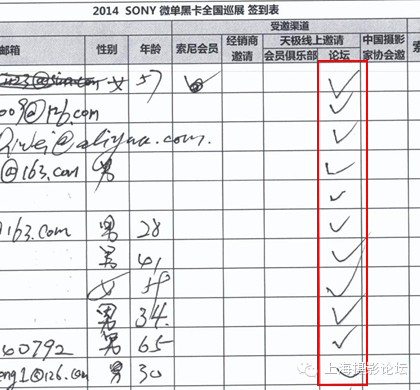 2014 SONY 微单黑卡全国巡展 签到表
受邀渠道
邮箱 性别 年龄 索尼会员 经销商邀请 天极线上邀请 中国摄影家协会邀
会员俱乐部 论坛
女 57
009@126.com
qiwei@aliyun.com.
@163.com 男
@163.com 男 28
男 41
女 59
男 34
60792 男 65
eng1@126.com 男 30
上海摄影论坛